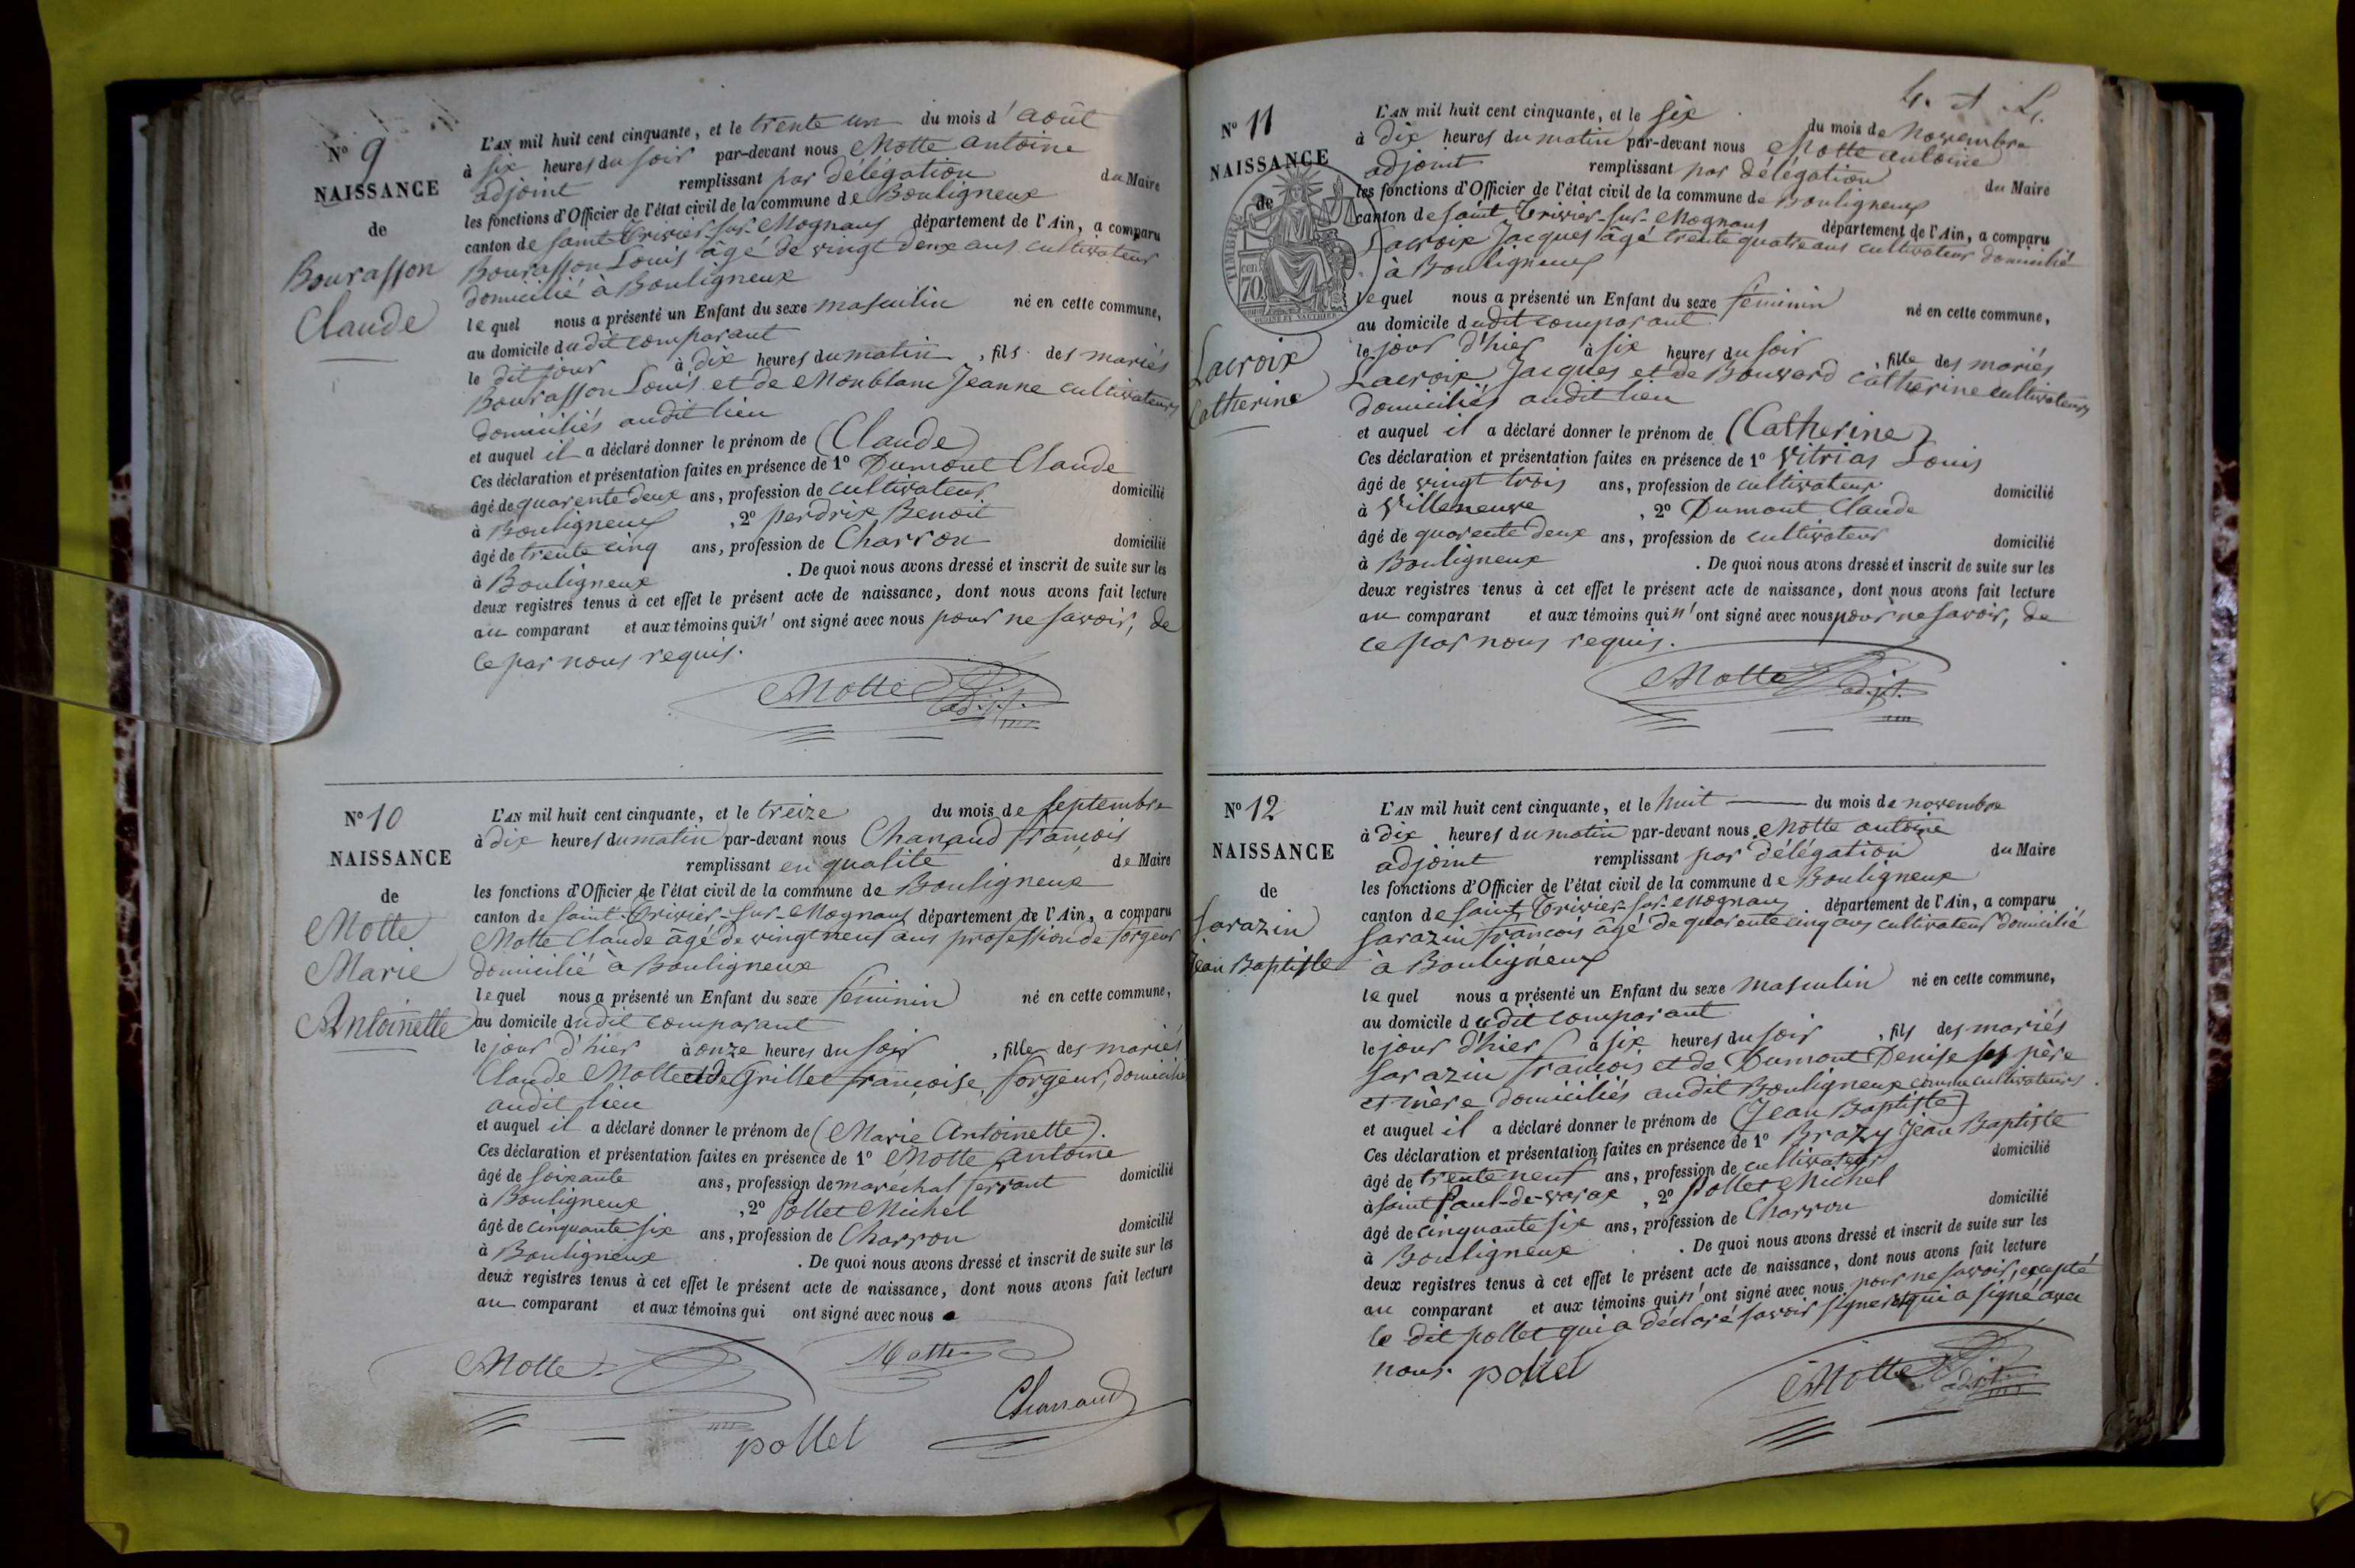 N° 9
NAISSANCE
de
Bourasson
Claude
L'AN mil huit cent cinquante, et le trente un du mois d'août
à six heures du soir par-devant nous Motte antoine
adjoint remplissant par délégation du Maire
les fonctions d'Officier de l'état civil de la commune de Bouligneux
canton de saint-Trivier-sur-Mognans département de l'Ain, a comparu
Bourasson Louis âgé de vingt deux ans cultivateur
domicilié à Bouligneux
lequel nous a présenté un Enfant du sexe masculin né en cette commune,
au domicile dudit comparant
le dit jour à dix heures du matin, fils des mariés
Bourasson Louis et de Monblanc Jeanne cultivateurs
domiciliés audit lieu
et auquel il a déclaré donner le prénom de (Claude)
Ces déclaration et présentation faites en présence de 1° Dumont Claude
âgé de quarente deux ans, profession de cultivateur domicilié
à Bouligneux, 2° perdrix Benoit
âgé de trente cinq ans, profession de Charron domicilié
à Bouligneux. De quoi nous avons dressé et inscrit de suite sur les
deux registres tenus à cet effet le présent acte de naissance, dont nous avons fait lecture
au comparant et aux témoins qui n'ont signé avec nous pour ne savoir, de
ce par nous requis.
Motte adjt.
N° 10
NAISSANCE
de
Motte
Marie
Antoinette
L'AN mil huit cent cinquante, et le treize du mois de septembre
à dix heures du matin par-devant nous Chanaud françois
remplissant en qualité de Maire
les fonctions d'Officier de l'état civil de la commune de Bouligneux
canton de saint-Trivier-sur-Mognans département de l'Ain, a comparu
Motte Claude âgé de vingt neuf ans profession de forgeur
domicilié à Bouligneux
lequel nous a présenté un Enfant du sexe féminin né en cette commune,
au domicile dudit comparant
le jour d'hier à onze heures du soir, fille des mariés
Claude Motte et de Grillet françoise, forgeur, domiciliés
audit lieu
et auquel il a déclaré donner le prénom de (Marie Antoinette).
Ces déclaration et présentation faites en présence de 1° Motte Antoine
âgé de soixante ans, profession de marechal ferrant domicilié
à Bouligneux, 2° Pollet Michel
âgé de cinquante six ans, profession de Charron domicilié
à Bouligneux. De quoi nous avons dressé et inscrit de suite sur les
deux registres tenus à cet effet le présent acte de naissance, dont nous avons fait lecture
au comparant et aux témoins qui ont signé avec nous
Motte Motte
Chanaud
pollet
N° 11
NAISSANCE
de
TIMBRE
70
Lacroix
Catherine
L'AN mil huit cent cinquante, et le six du mois de novembre
à dix heures du matin par-devant nous Motte antoine
adjoint remplissant par délégation du Maire
les fonctions d'Officier de l'état civil de la commune de Bouligneux
canton de saint Trivier-sur-Mognans département de l'Ain, a comparu
Lacroix Jacques âgé trente quatre ans cultivateur domicilié
à Bouligneux
lequel nous a présenté un Enfant du sexe féminin né en cette commune,
au domicile dudit comparant
le jour d'hier à six heures du soir, fille des mariés
Lacroix Jacques et de Bouvard Catherine cultivateurs
domiciliés audit lieu
et auquel il a déclaré donner le prénom de (Catherine)
Ces déclaration et présentation faites en présence de 1° Vitrias Louis
âgé de vingt trois ans, profession de cultivateur domicilié
à Villeneuve, 2° Dumont Claude
âgé de quarente deux ans, profession de cultivateur domicilié
à Bouligneux. De quoi nous avons dressé et inscrit de suite sur les
deux registres tenus à cet effet le présent acte de naissance, dont nous avons fait lecture
au comparant et aux témoins qui n'ont signé avec nous pour ne savoir, de
ce par nous requis.
Motte adjt.
N° 12
NAISSANCE
de
Sarazin
Jean Baptiste
L'AN mil huit cent cinquante, et le huit du mois de novembre
à dix heures du matin par-devant nous Motte antoine
adjoint remplissant par délégation du Maire
les fonctions d'Officier de l'état civil de la commune de Bouligneux
canton de saint Trivier-sur-Mognans département de l'Ain, a comparu
Sarazin françois âgé de quarente cinq ans cultivateur domicilié
à Bouligneux
lequel nous a présenté un Enfant du sexe masculin né en cette commune,
au domicile dudit comparant
le jour d'hier à six heures du soir, fils des mariés
Sarazin françois et de Dumont Denise ses père
et mère domiciliés audit Bouligneux comme cultivateurs
et auquel il a déclaré donner le prénom de (Jean Baptiste)
Ces déclaration et présentation faites en présence de 1° Brazy Jean Baptiste
âgé de trente neuf ans, profession de cultivateur domicilié
à saint Paul-de-varax, 2° Pollet Michel
âgé de cinquante six ans, profession de Charron domicilié
à Bouligneux. De quoi nous avons dressé et inscrit de suite sur les
deux registres tenus à cet effet le présent acte de naissance, dont nous avons fait lecture
au comparant et aux témoins qui n'ont signé avec nous pour ne savoir, excepté
le dit pollet qui a déclaré savoir signer et qui a signé avec
nous. pollet
Motte adjt.